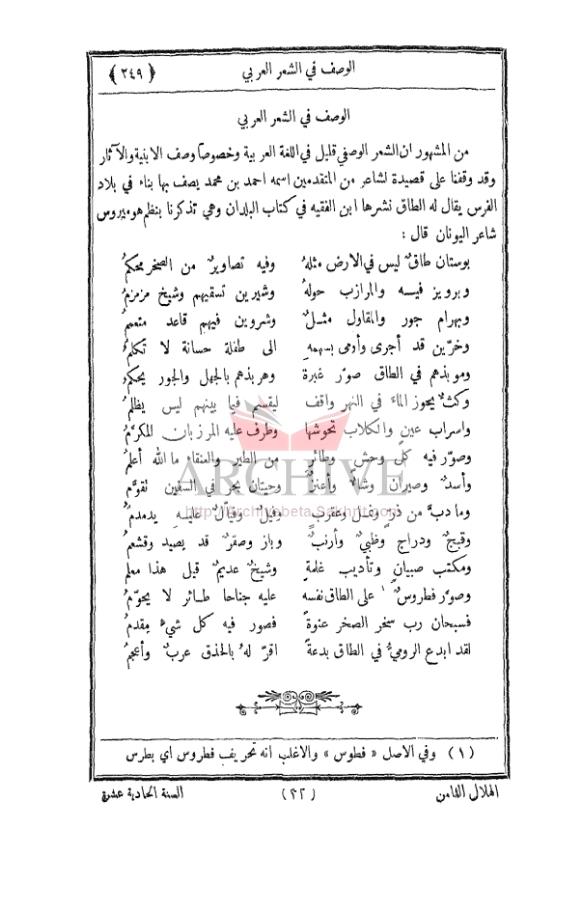 الوصف في الشعر العربي ﴿ ٢٤٩ ﴾
الوصف في الشعر العربي
من المشهور ان الشعر الوصفي قليل في اللغة العربية وخصوصاً وصف الابنية والآثار
وقد وقفنا على قصيدة لشاعر من المتقدمين اسمه احمد بن محمد يصف بها بناء في بلاد
الفرس يقال له الطاق نشرها ابن الفقيه في كتاب البلدان وهي تذكرنا بنظم هوميروس
شاعر اليونان قال :
بوستان طاقٌ ليس في الارض مثلهُ وفيه تصاويرٌ من الصخر محكمُ
وبرويز فيسه والمرازب حولهُ وشيرين تسقيهم وشيخ مزمزمُ
وبهرام جور والمقاول مثلٌ وشروين فيهم قاعد متعمم
وخرّين قد أجرى وأدمى بسهمهِ الى طفلة حسانة لا تكلمُ
وموبذهم في الطاق صوّر غبرةً وهربذهم بالجهل والجور يحكمُ
يحوز الماء في النهر واقف ليقسم فيا بينهم ليس يظلمُ
واسراب عينٍ والكلاب تحوشها وطرف عليه المرزبان المكرّمُ
وصوّر فيه كلّ وحش وطائر من الطير والعنقاء ما الله أعلمُ
وأسدٌ وصيرانٌ وشاءٌ وأعنزٌ وحيتان بحر في السفين تقوّم
وما دبّ من ذرّ ونمل وعقرب وفيلٌ وفيّالٌ عليه يدمدمُ
وقبجٌ ودراج وظبيٌ وأرنبٌ وباز وصقرٌ قد يصيد وقشعمُ
ومكتب صبيان وتأديب غلمةٍ وشيخٌ عديمٌ قبل هذا معلم
وصوّر فطروسٌ ١ على الطاق نفسهُ عليه جناحا طائر لا يحوّمُ
فسبحان رب سخر الصخر عنوةً فصور فيه كل شيءٍ مقدمُ
لقد ابدع الروميُّ في الطاق بدعةً اقرّ لهُ بالحذق عربٌ وأعجمُ
(١) وفي الاصل « فطوس » والاغلب انه تحريف فطروس اي بطرس
الهلال الثامن (٣٢) السنة الحادية عشرة
ARCHIVE
http://Archivebeta.Sakhrit.com